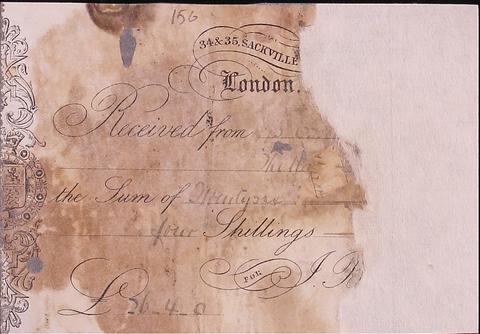 156
34 & 35, SACKVILLE
London.
Received from
the Sum of Twentysix
four Shillings
FOR J. P
£ 26-4-0